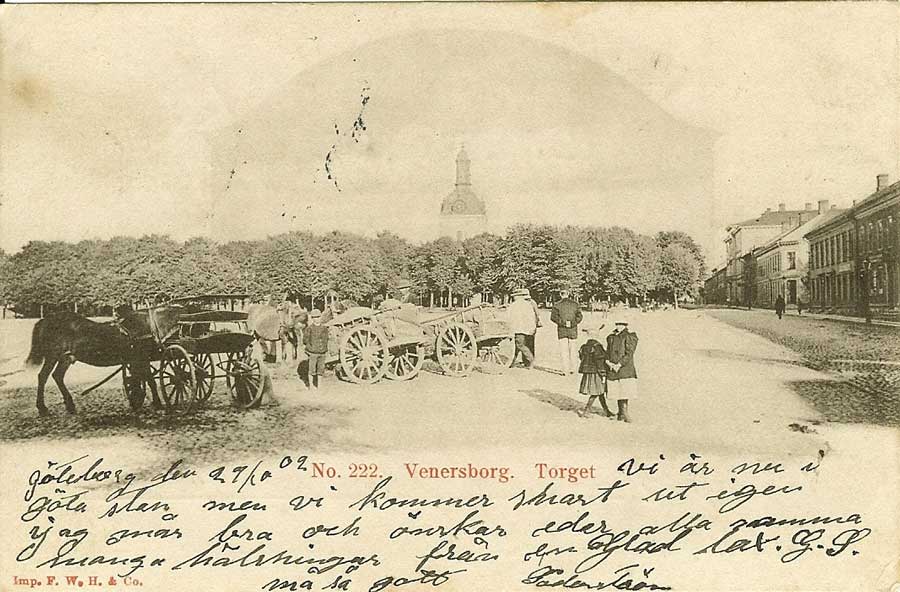 Göteborg den 29/10 02 No. 222. Venersborg. Torget vi är nu i
Göta stan men vi kommer snart ut igen
jag mår bra och önskar eder alla samma
många hälsningar från en Glad lax. G. S.
må så gott Söderström
Imp. F. W. H. & Co.